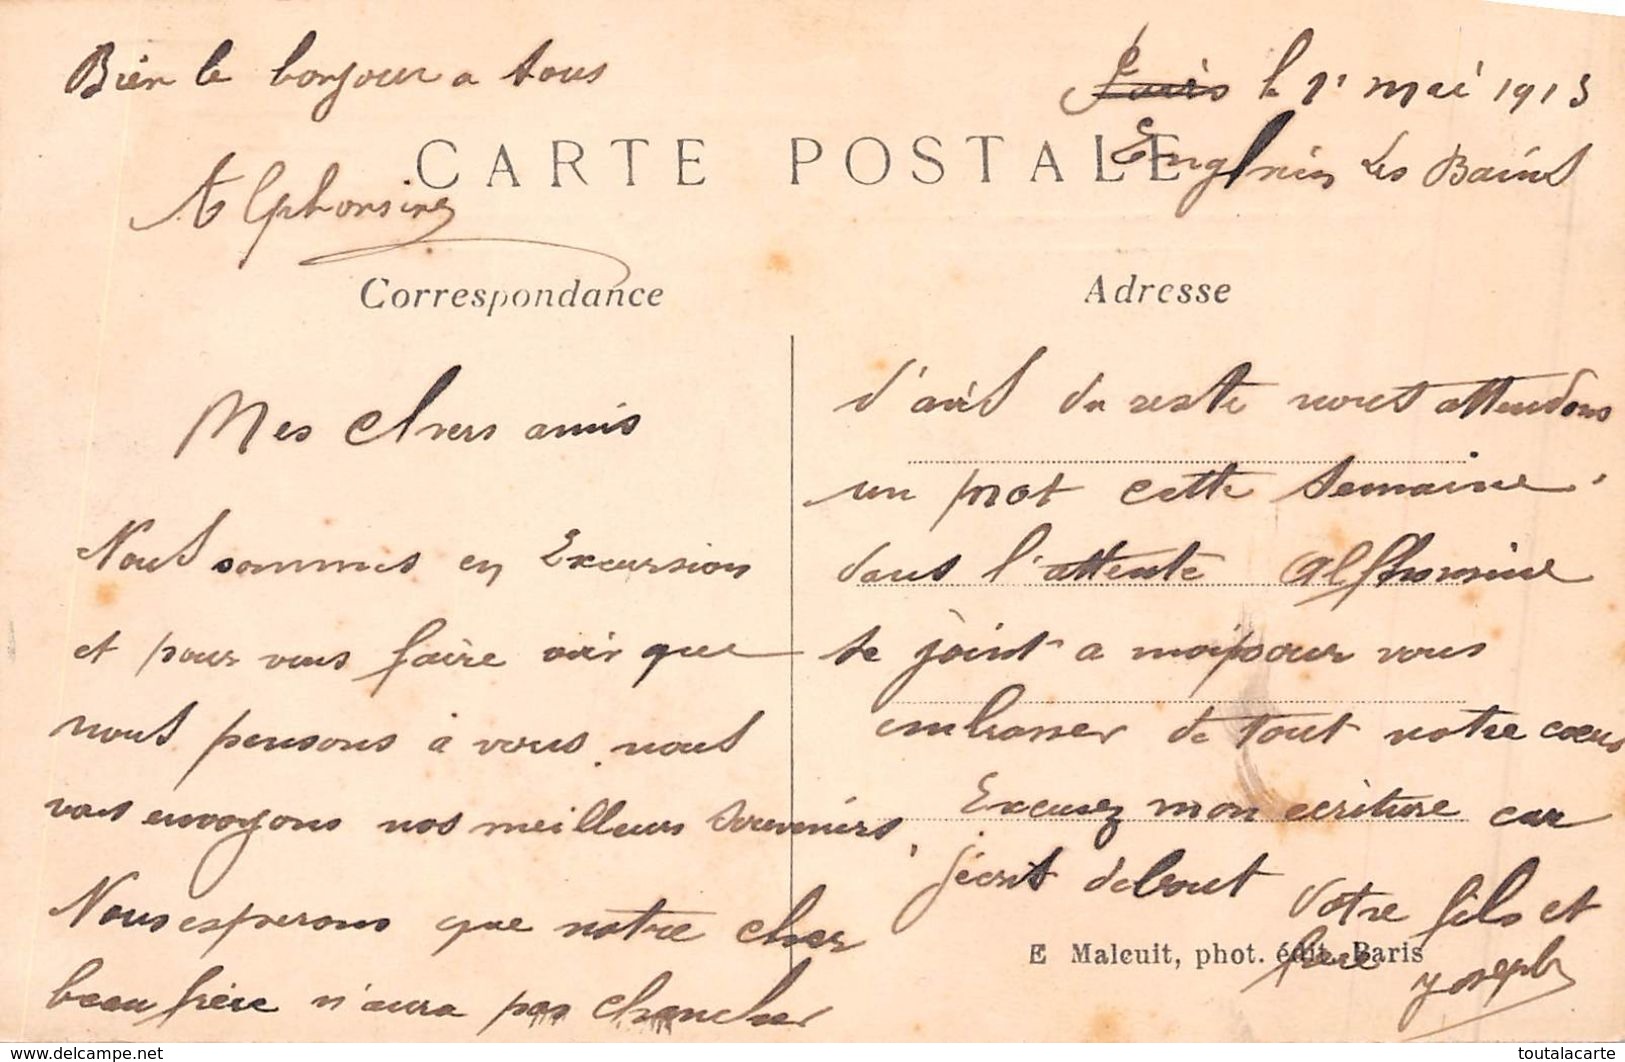 Bien le bonjour a tous
Alphonsine
Paris le 1r mai 1913
Enghien Les Bains
CARTE POSTALE
Correspondance
Adresse
Mes chers amis
Nous sommes en Excursion
et pour vous faire voir que
nous pensons à vous nous
vous envoyons nos meilleurs souvenirs.
Nous esperons que notre cher
beau frère n'aura pas chancher
d'avis du reste nous attendons
un mot cette semaine.
dans l'attente Alphonsine
se joint a moi pour vous
embrasser de tout notre coeur
Excusez mon ecriture car
j'écrit debout
Votre fils et
frere Joseph
E Malcuit, phot. édit. Paris
delcampe.net
toutalacarte